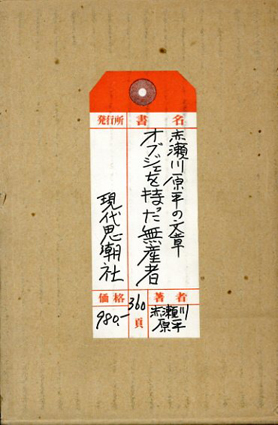 書名
赤瀬川原平の文章
オブジェを持った無産者
発行所
現代思潮社
著者
赤瀬川
原平
360頁
価格
980.-